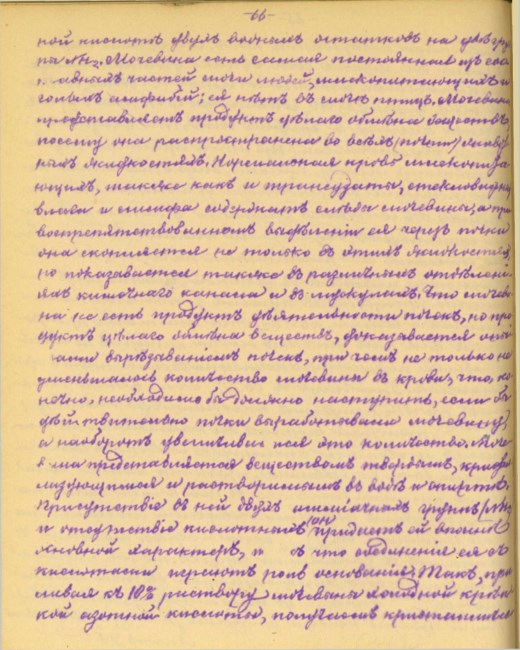 -66-
ной кислоте двухъ водныхъ остатковъ на две гру
пы NH2. Мочевина есть самая постоянная изъ сос
тавныхъ частей мочи людей, млекопитающихъ и
голыхъ амфибій; ея нетъ въ моче птицъ. Мочевина
представляетъ продуктъ целаго обмена веществъ
посему она распространена во всехъ (почти) живот
ныхъ жидкостяхъ. Нормальная кровь млекопита
ющихъ, также какъ и трансудаты, стекловидная
влага и лимфа содержатъ следы мочевины; а при
воспрепятствованномъ выделеніи ея черезъ почки
она скопляется не только въ этихъ жидкостяхъ,
но показывается также въ различныхъ отделені
яхъ кишечнаго канала и въ мускулахъ. Что мочеви
на не есть продуктъ деятельности почекъ, но про
дуктъ целаго обмена веществъ, доказывается
вырезываніемъ почекъ, при чемъ не только не
уменьшалось количество мочевины въ крови, что, ко
нечно, необходимо бы должно наступить, если бы
действительно почки вырабатывали мочевину,
а наоборотъ увеличивалось это количество. Моче
вина представляется веществомъ твердымъ, криста
лизующимся и растворимымъ въ воде и спирте.
Присутствіе въ ней двухъ амміачныхъ группъ (NH2)
и отсутствіе кислотныхъ (OH) придаетъ ей вполне
основной характеръ, и въ соединенія ея съ
кислотами играютъ роль основанія. Такъ, при
ливая къ 10% раствору мочевины холодной крепкой
кой азотной кислоты, получаемъ кристаллы